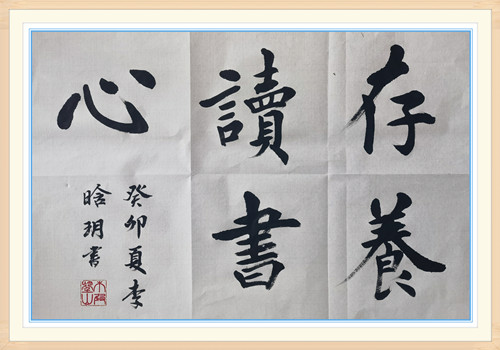 存養
讀書
心
癸卯夏李
晗玥書